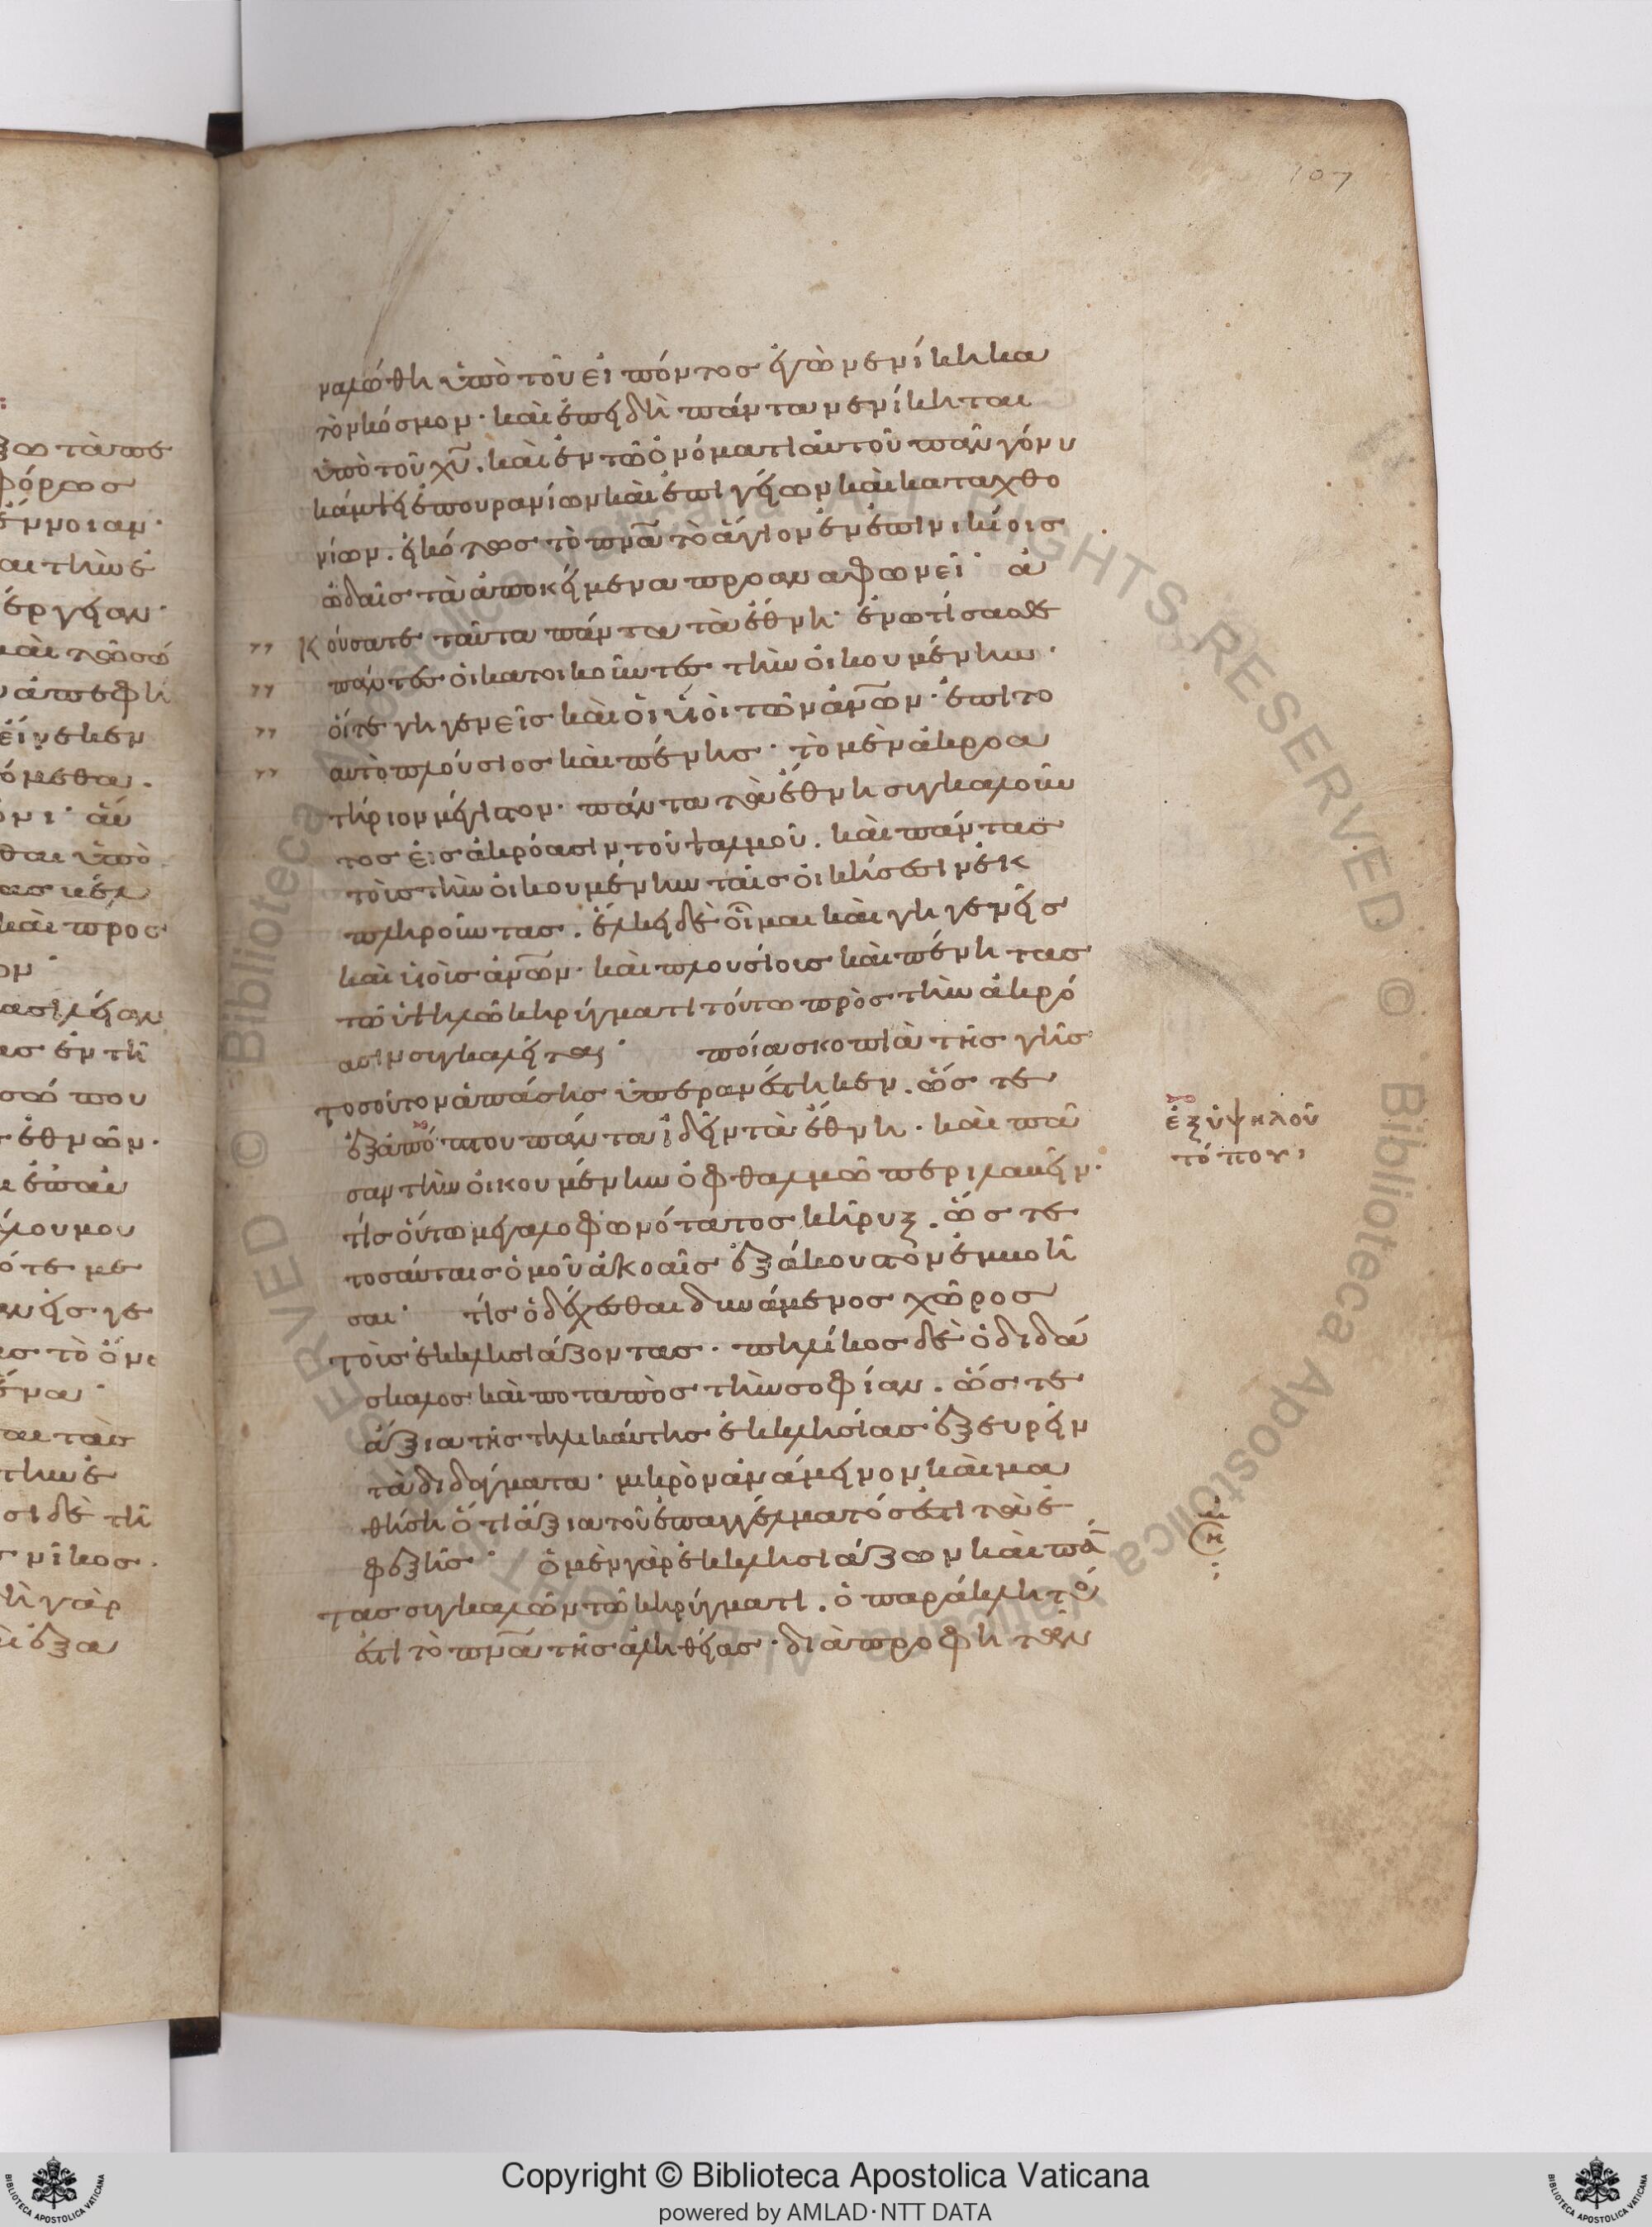 ναλώθη ὑπὸ τοῦ εἰπόντος ἐγὼ νενίκηκα
τὸν κόσμον· καὶ ἐπειδὴ πάντα νενίκηται
ὑπὸ τοῦ χ̅υ̅. καὶ ἐν τῶ ὀνόματι αὐτοῦ πᾶν γόνυ
κάμπτει ἐπουρανίων καὶ ἐπιγείων καὶ καταχθο
νίων. εἰκότως τὸ π̅ν̅α̅ τὸ ἅγιον ἐν ἐπινικίοις
ὠδαῖς τὰ ἀποκείμενα προαναφωνεῖ· ἀ
κούσατε ταῦτα πάντα τὰ ἔθνη· ἐνωτίσασθε
πάντες οἱ κατοικοῦντες τὴν οἰκουμένην·
οἵτε γηγενεῖς καὶ οἱ υἱοὶ τῶν ἀν̅ω̅ν· ἐπιτο
αυτὸ πλούσιος καὶ πένης· τὸ μὲν ἀκροα
τήριον μέγιστον· πάντα τὰ ἔθνη συγκαλοῦν
τος εἰς ἀκρόασιν τοῦ ψαλμοῦ. καὶ πάντας
τοὺς τὴν οἰκουμένην ταῖς οἰκήσεσιν ἐκ
πληροῦντας. ἕλκει δὲ οἶμαι καὶ γηγενεῖς
καὶ υἱοὺς ἀν̅ω̅ν· καὶ πλουσίους καὶ πένητας
τῶ ὑψηλῶ κηρύγματι τούτω πρὸς τὴν ἀκρό
ασιν συγκαλεῖται· ποία σκοπιὰ τῆς γῆς
τοσοῦτον ἁπάσης ὑπερανέστηκεν. ὥς τε
ἐξαπόπτου πάντα ἰδεῖν τὰ ἔθνη. καὶ πᾶ
σαν τὴν οἰκουμένην ὀφθαλμῶ περιλαβεῖν·
τίς οὕτω μεγαλοφωνότατος κῆρυξ. ὥς τε
τοσαύταις ὁμοῦ ἀκοαῖς ἐξάκουστον ἐμβοῆ
σαι· τίς ὁ δέχεσθαι δυνάμενος χῶρος
τοὺς ἐκκλησιάζοντας· πηλίκος δὲ ὁ διδά
σκαλος καὶ ποταπὸς τὴν σοφίαν. ὥς τε
ἄξια τῆς τηλικαύτης ἐκκλησίας ἐξευρεῖν
τὰ διδάγματα· μικρὸν ἀνάμεινον καὶ μα
θήση ὅτι ἄξια τοῦ ἐπαγγέλματός ἐστι τὰ ἐ
φεξῆς· ὁ μὲν γὰρ ἐκκλησιάζων καὶ πά̅
τας συγκαλῶν τῶ κηρύγματι. ὁ παράκλητό
ἐστι τὸ π̅ν̅α̅ τῆς ἀληθείας· διὰ προφητῶν
ἐξ ὑψηλοῦ
τόπου
107
Copyright © Biblioteca Apostolica Vaticana
powered by AMLAD·NTT DATA